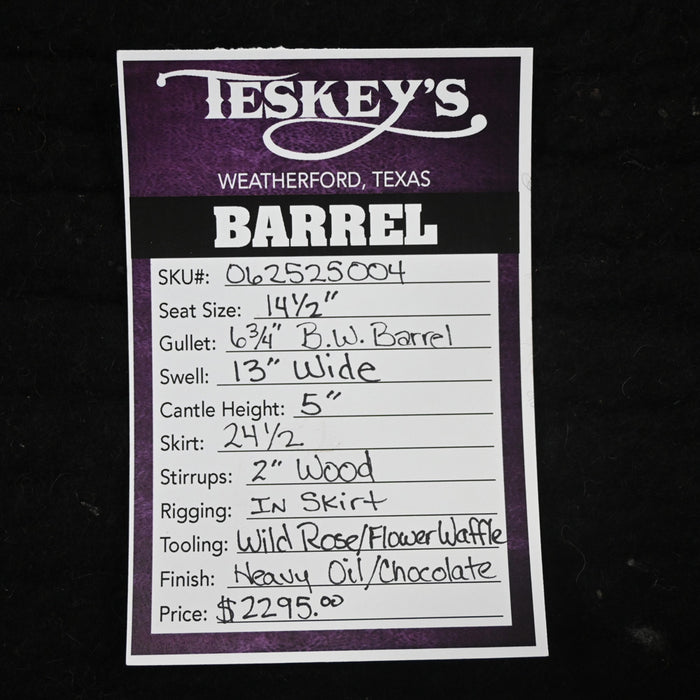 TESKEY'S
WEATHERFORD, TEXAS
BARREL
SKU#: 062525004
Seat Size: 14 1/2"
Gullet: 6 3/4" B.W. Barrel
Swell: 13" Wide
Cantle Height: 5"
Skirt: 24 1/2
Stirrups: 2" Wood
Rigging: IN Skirt
Tooling: Wild Rose/Flower Waffle
Finish: Heavy Oil/Chocolate
Price: $2295.00